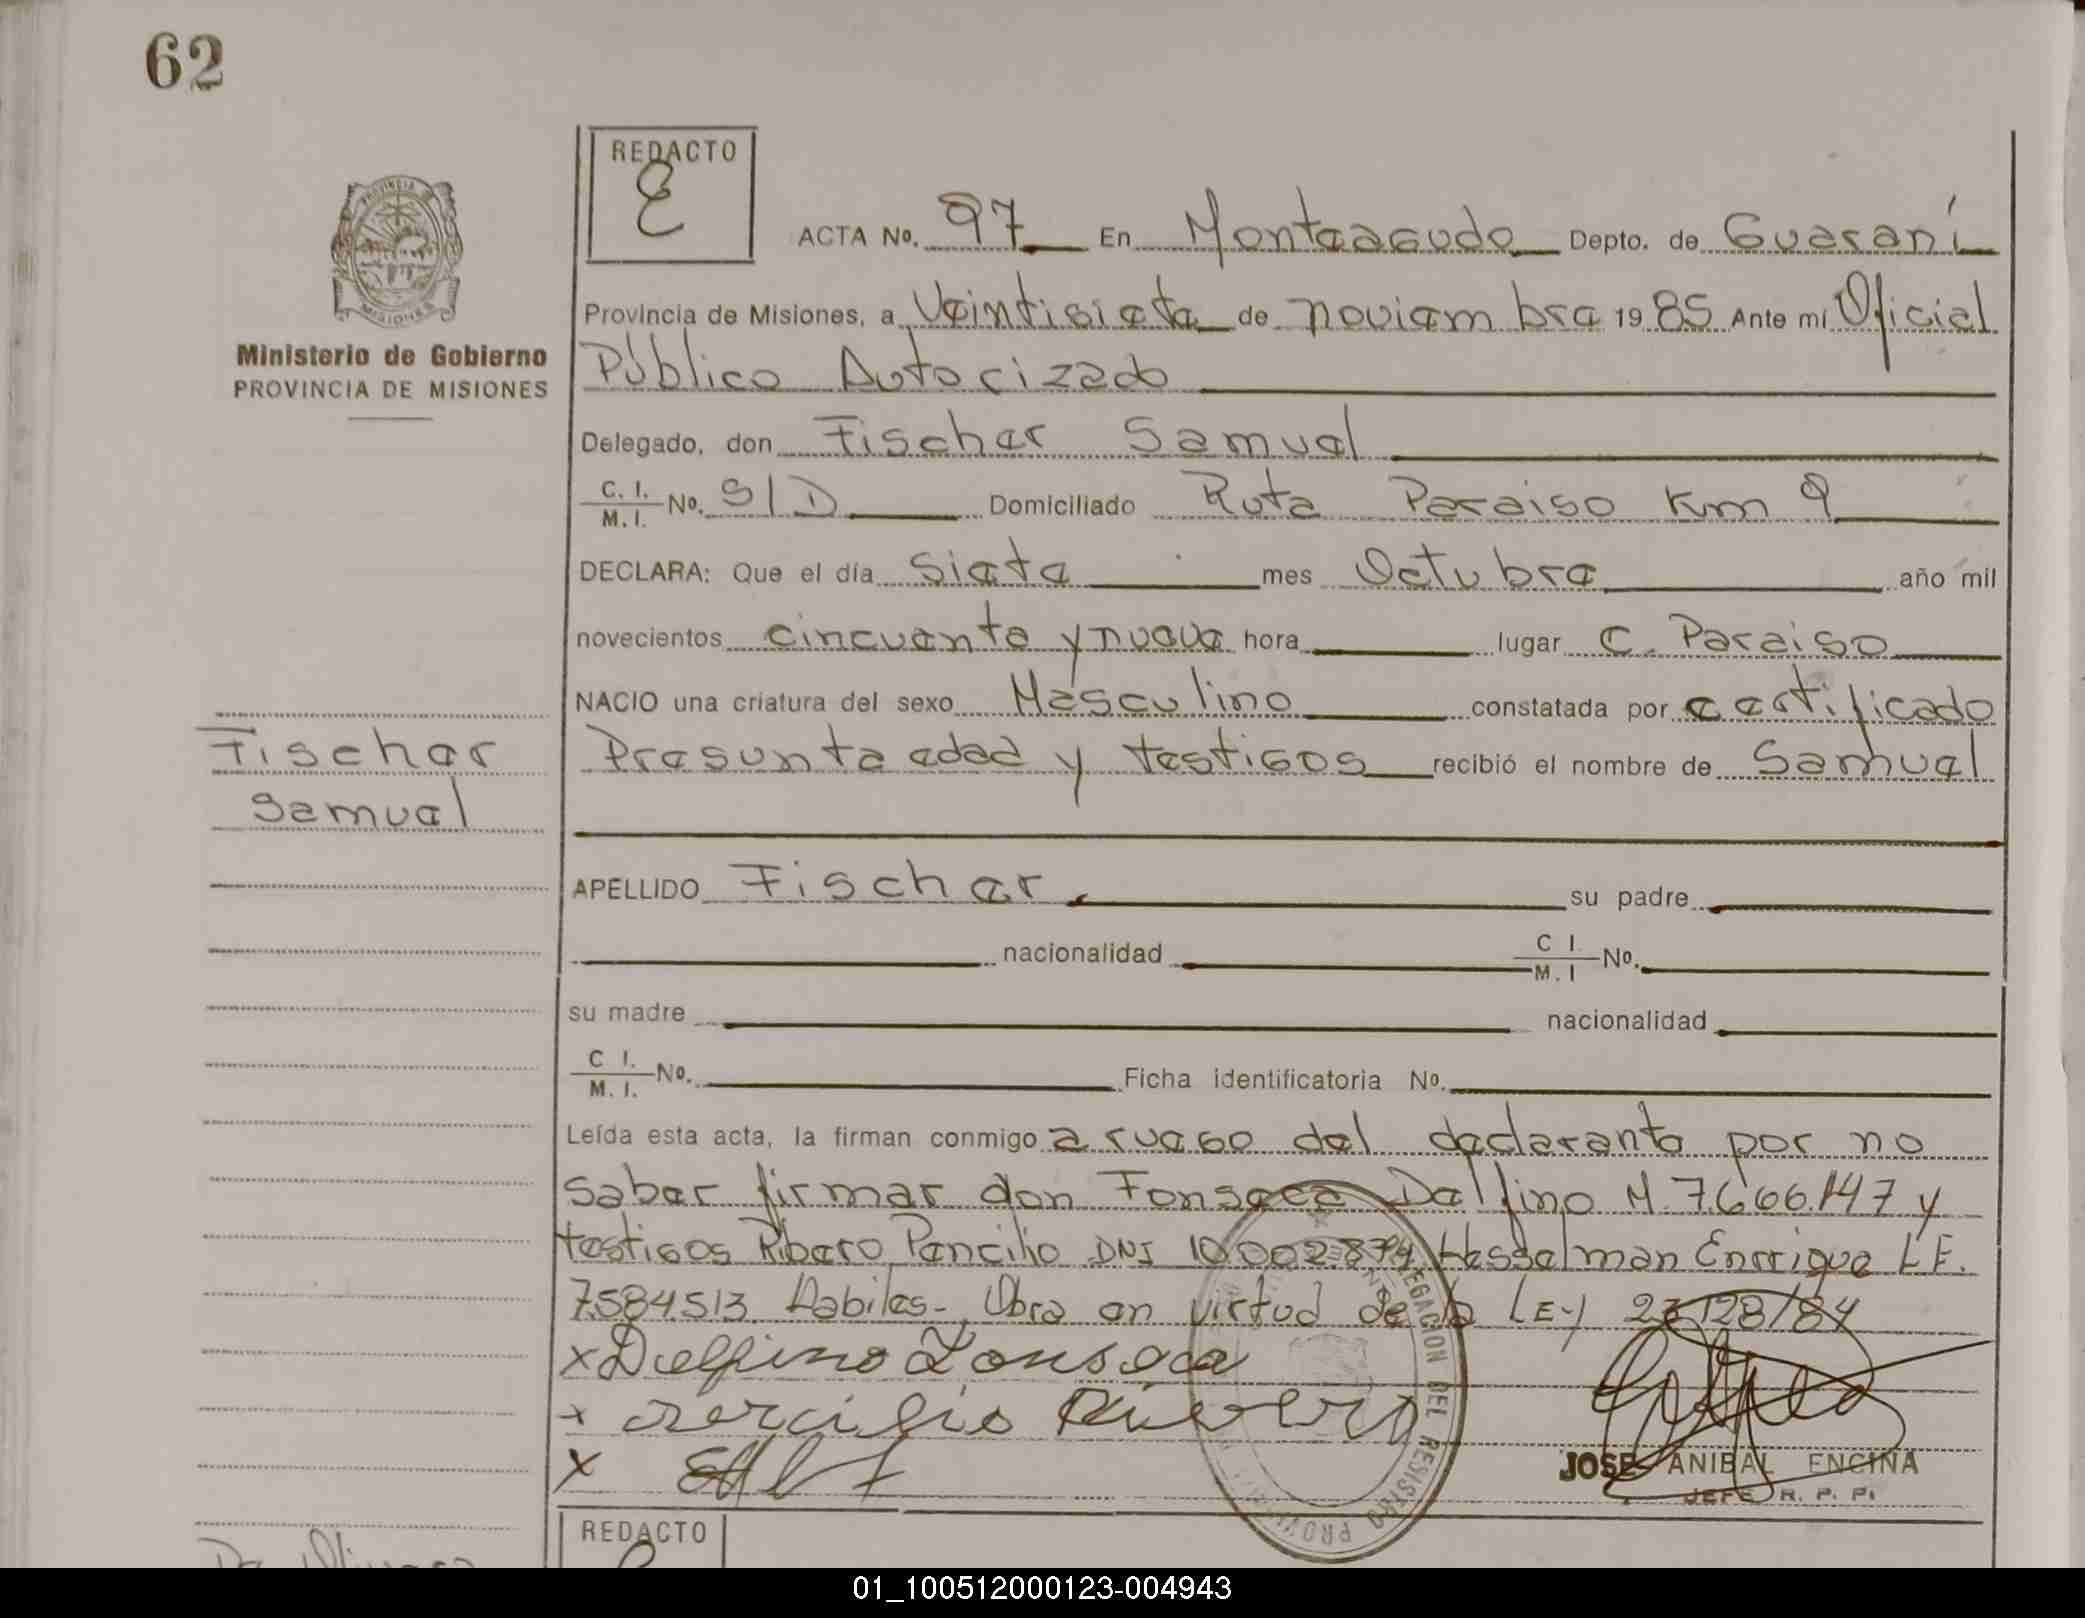 62
REDACTO
E
ACTA No. 97 En Monteagudo Depto. de Guaraní
PROVINCIA DE MISIONES
Ministerio de Gobierno
PROVINCIA DE MISIONES
Provincia de Misiones, a Veintisiete de noviembre 1985 Ante mí Oficial
Público Autorizado
Delegado, don Fischer Samuel
C. I. / M. I. No. S/D Domiciliado Ruta Paraiso Km 9
DECLARA: Que el día Siete mes Octubre año mil
novecientos cincuenta y nueve hora lugar C. Paraiso
NACIO una criatura del sexo Masculino constatada por certificado
Presunta edad y testigos recibió el nombre de Samuel
Fischer
Samuel
APELLIDO Fischer su padre
nacionalidad C I. / M. I No.
su madre nacionalidad
C I. / M. I. No. Ficha identificatoria No.
Leída esta acta, la firman conmigo a ruego del declarante por no
saber firmar don Fonseca Delfino M. 7.666.147 y
testigos Ribero Percilio DNI 10.002.874 Hesselman Enrrique L.E.
7.584.513 Habiles- Obra en virtud de la LEY 23128/84
x Delfino Fonseca
x Rivero
x
DELEGACION DEL REGISTRO PROVINCIAL
JOSE ANIBAL ENCINA
JEFE R. P. P.
REDACTO
01_100512000123-004943